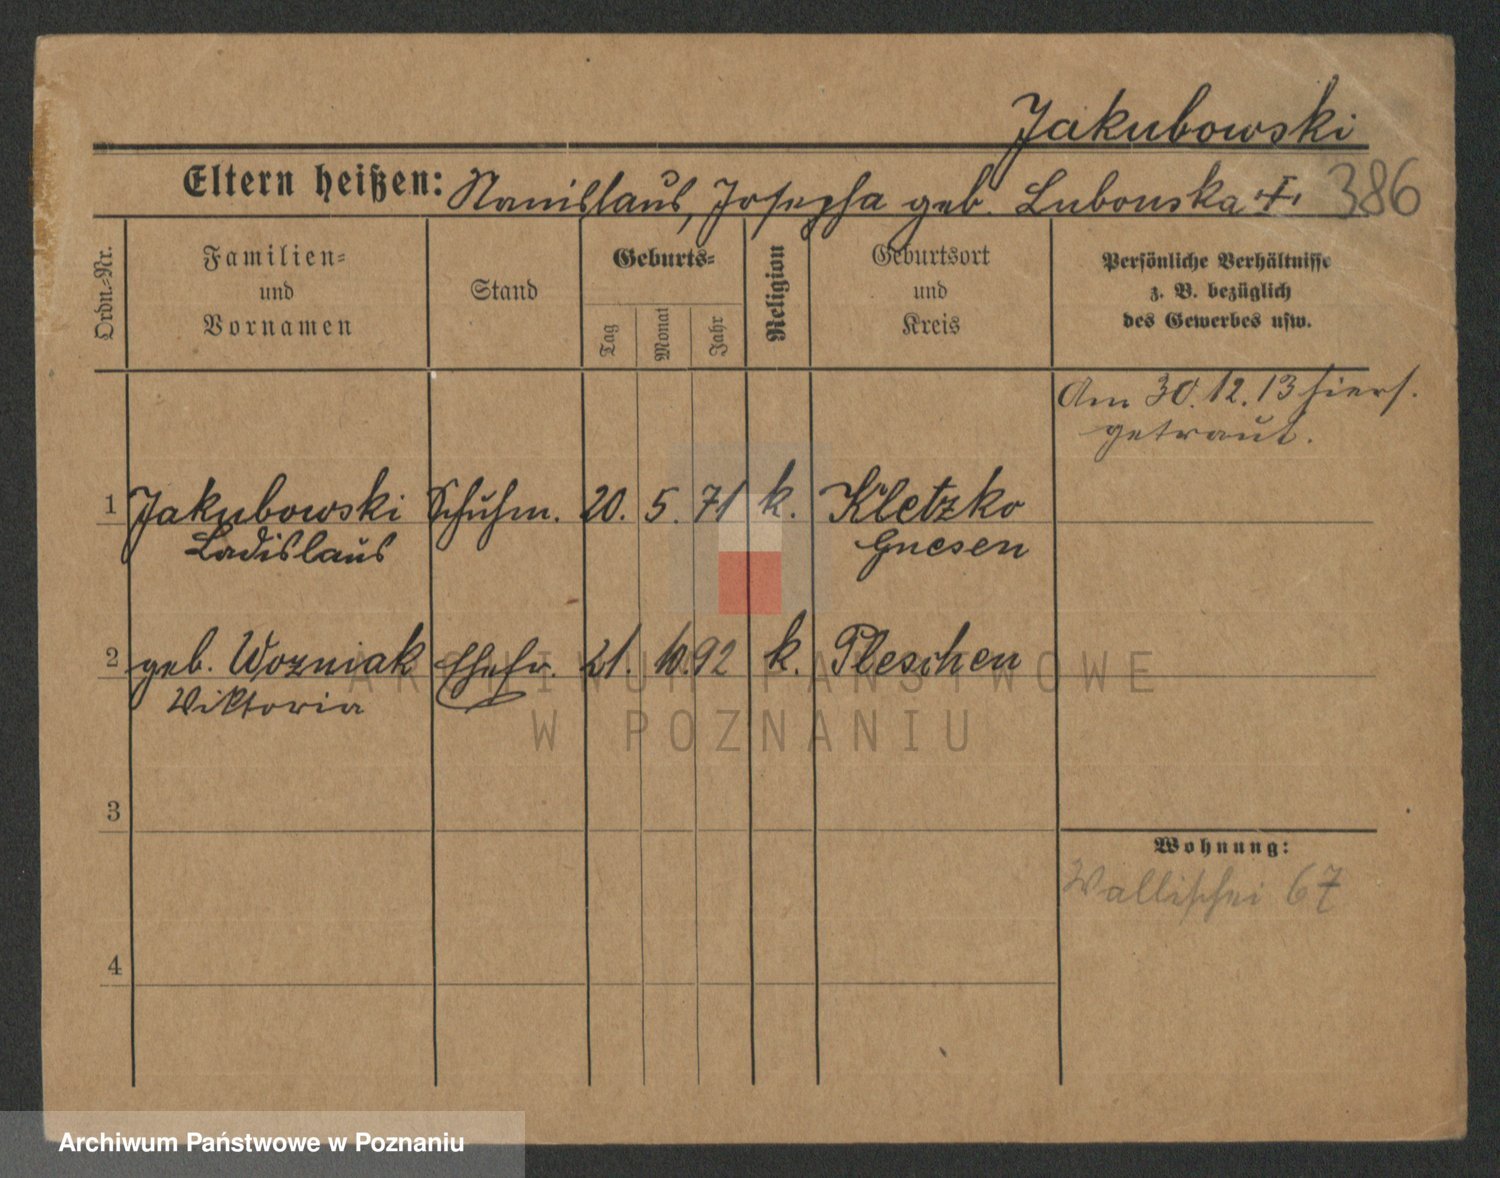 Jakubowski
Eltern heißen: Stanislaus, Josepha geb. Lubonska †. 386
Ordn.-Nr.
Familien-
und
Vornamen
Stand
Geburts-
Tag
Monat
Jahr
Religion
Geburtsort
und
Kreis
Persönliche Verhältnisse
z. B. bezüglich
des Gewerbes usw.
Am 30.12.13 hiers.
getraut.
1 Jakubowski Schuhm. 20. 5. 71 k. Kletzko
Ladislaus Gnesen
2 geb. Wozniak Ehefr. 21. 10. 92 k. Pleschen
Viktoria
3
Wohnung:
Wallischei 67
4
ARCHIWUM PAŃSTWOWE
W POZNANIU
Archiwum Państwowe w Poznaniu